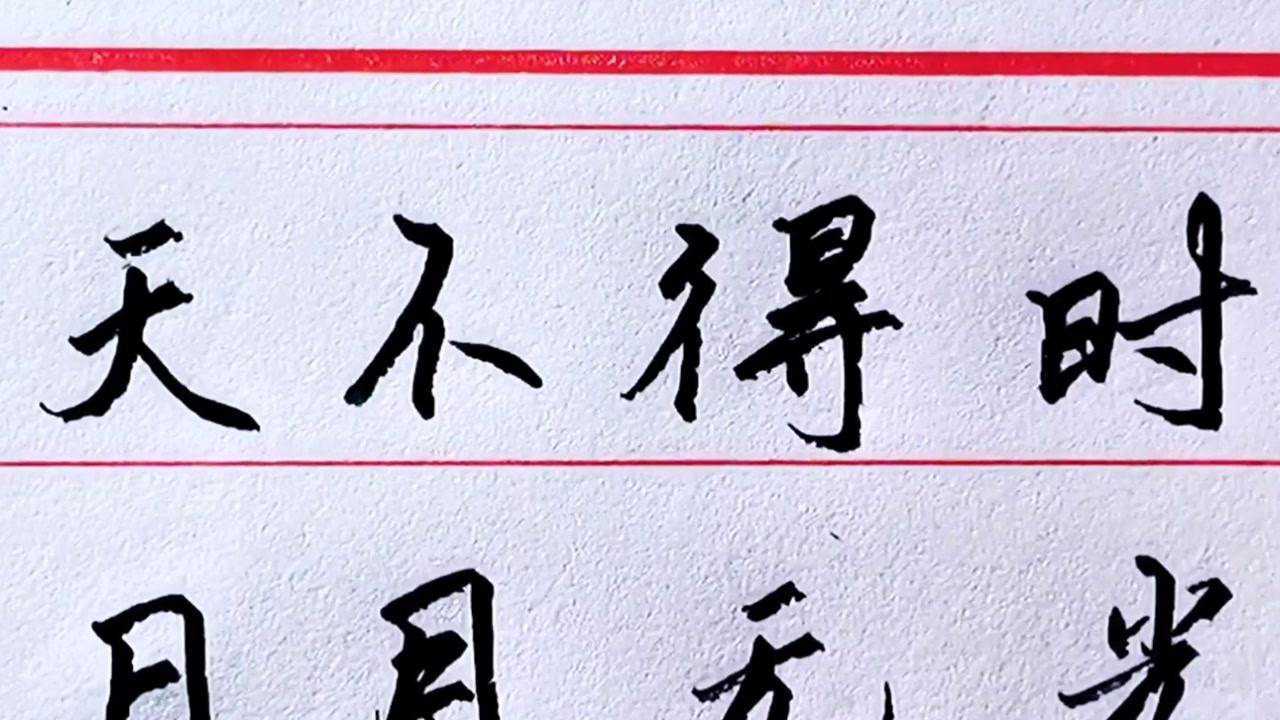 天不得时
日月无光